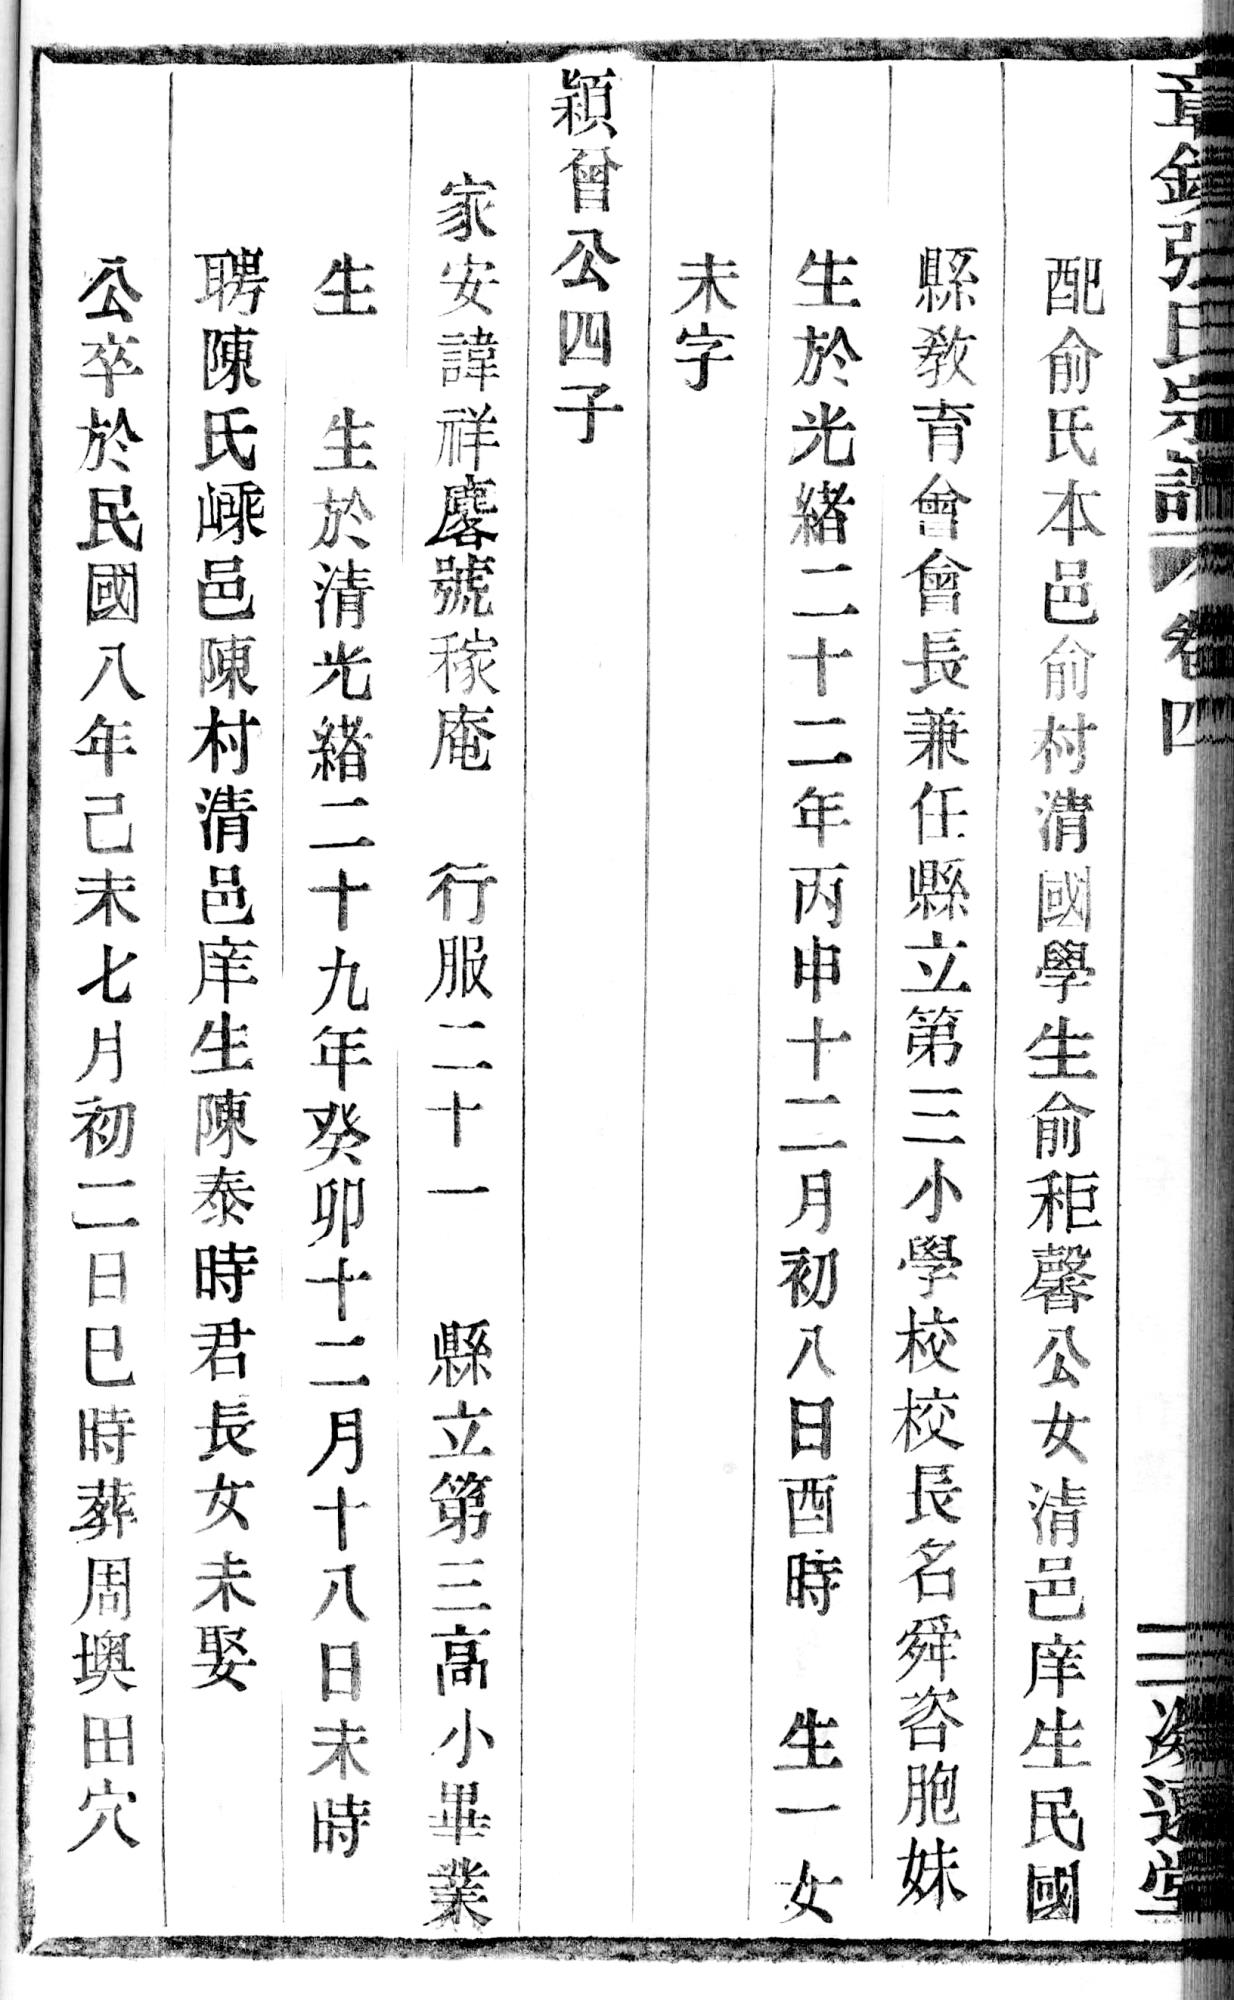 章鎮張氏宗譜 卷四 三 遠堂
配俞氏本邑俞村清國學生俞秬馨公女清邑庠生民國
縣教育會會長兼任縣立第三小學校校長名舜咨胞妹
生於光緒二十二年丙申十二月初八日酉時 生一女
未字
穎曾公四子
家安諱祥麐號稼庵 行服二十一 縣立第三高小畢業
生 生於清光緒二十九年癸卯十二月十八日未時
聘陳氏嵊邑陳村清邑庠生陳泰時君長女未娶
公卒於民國八年己未七月初二日巳時葬周墺田穴